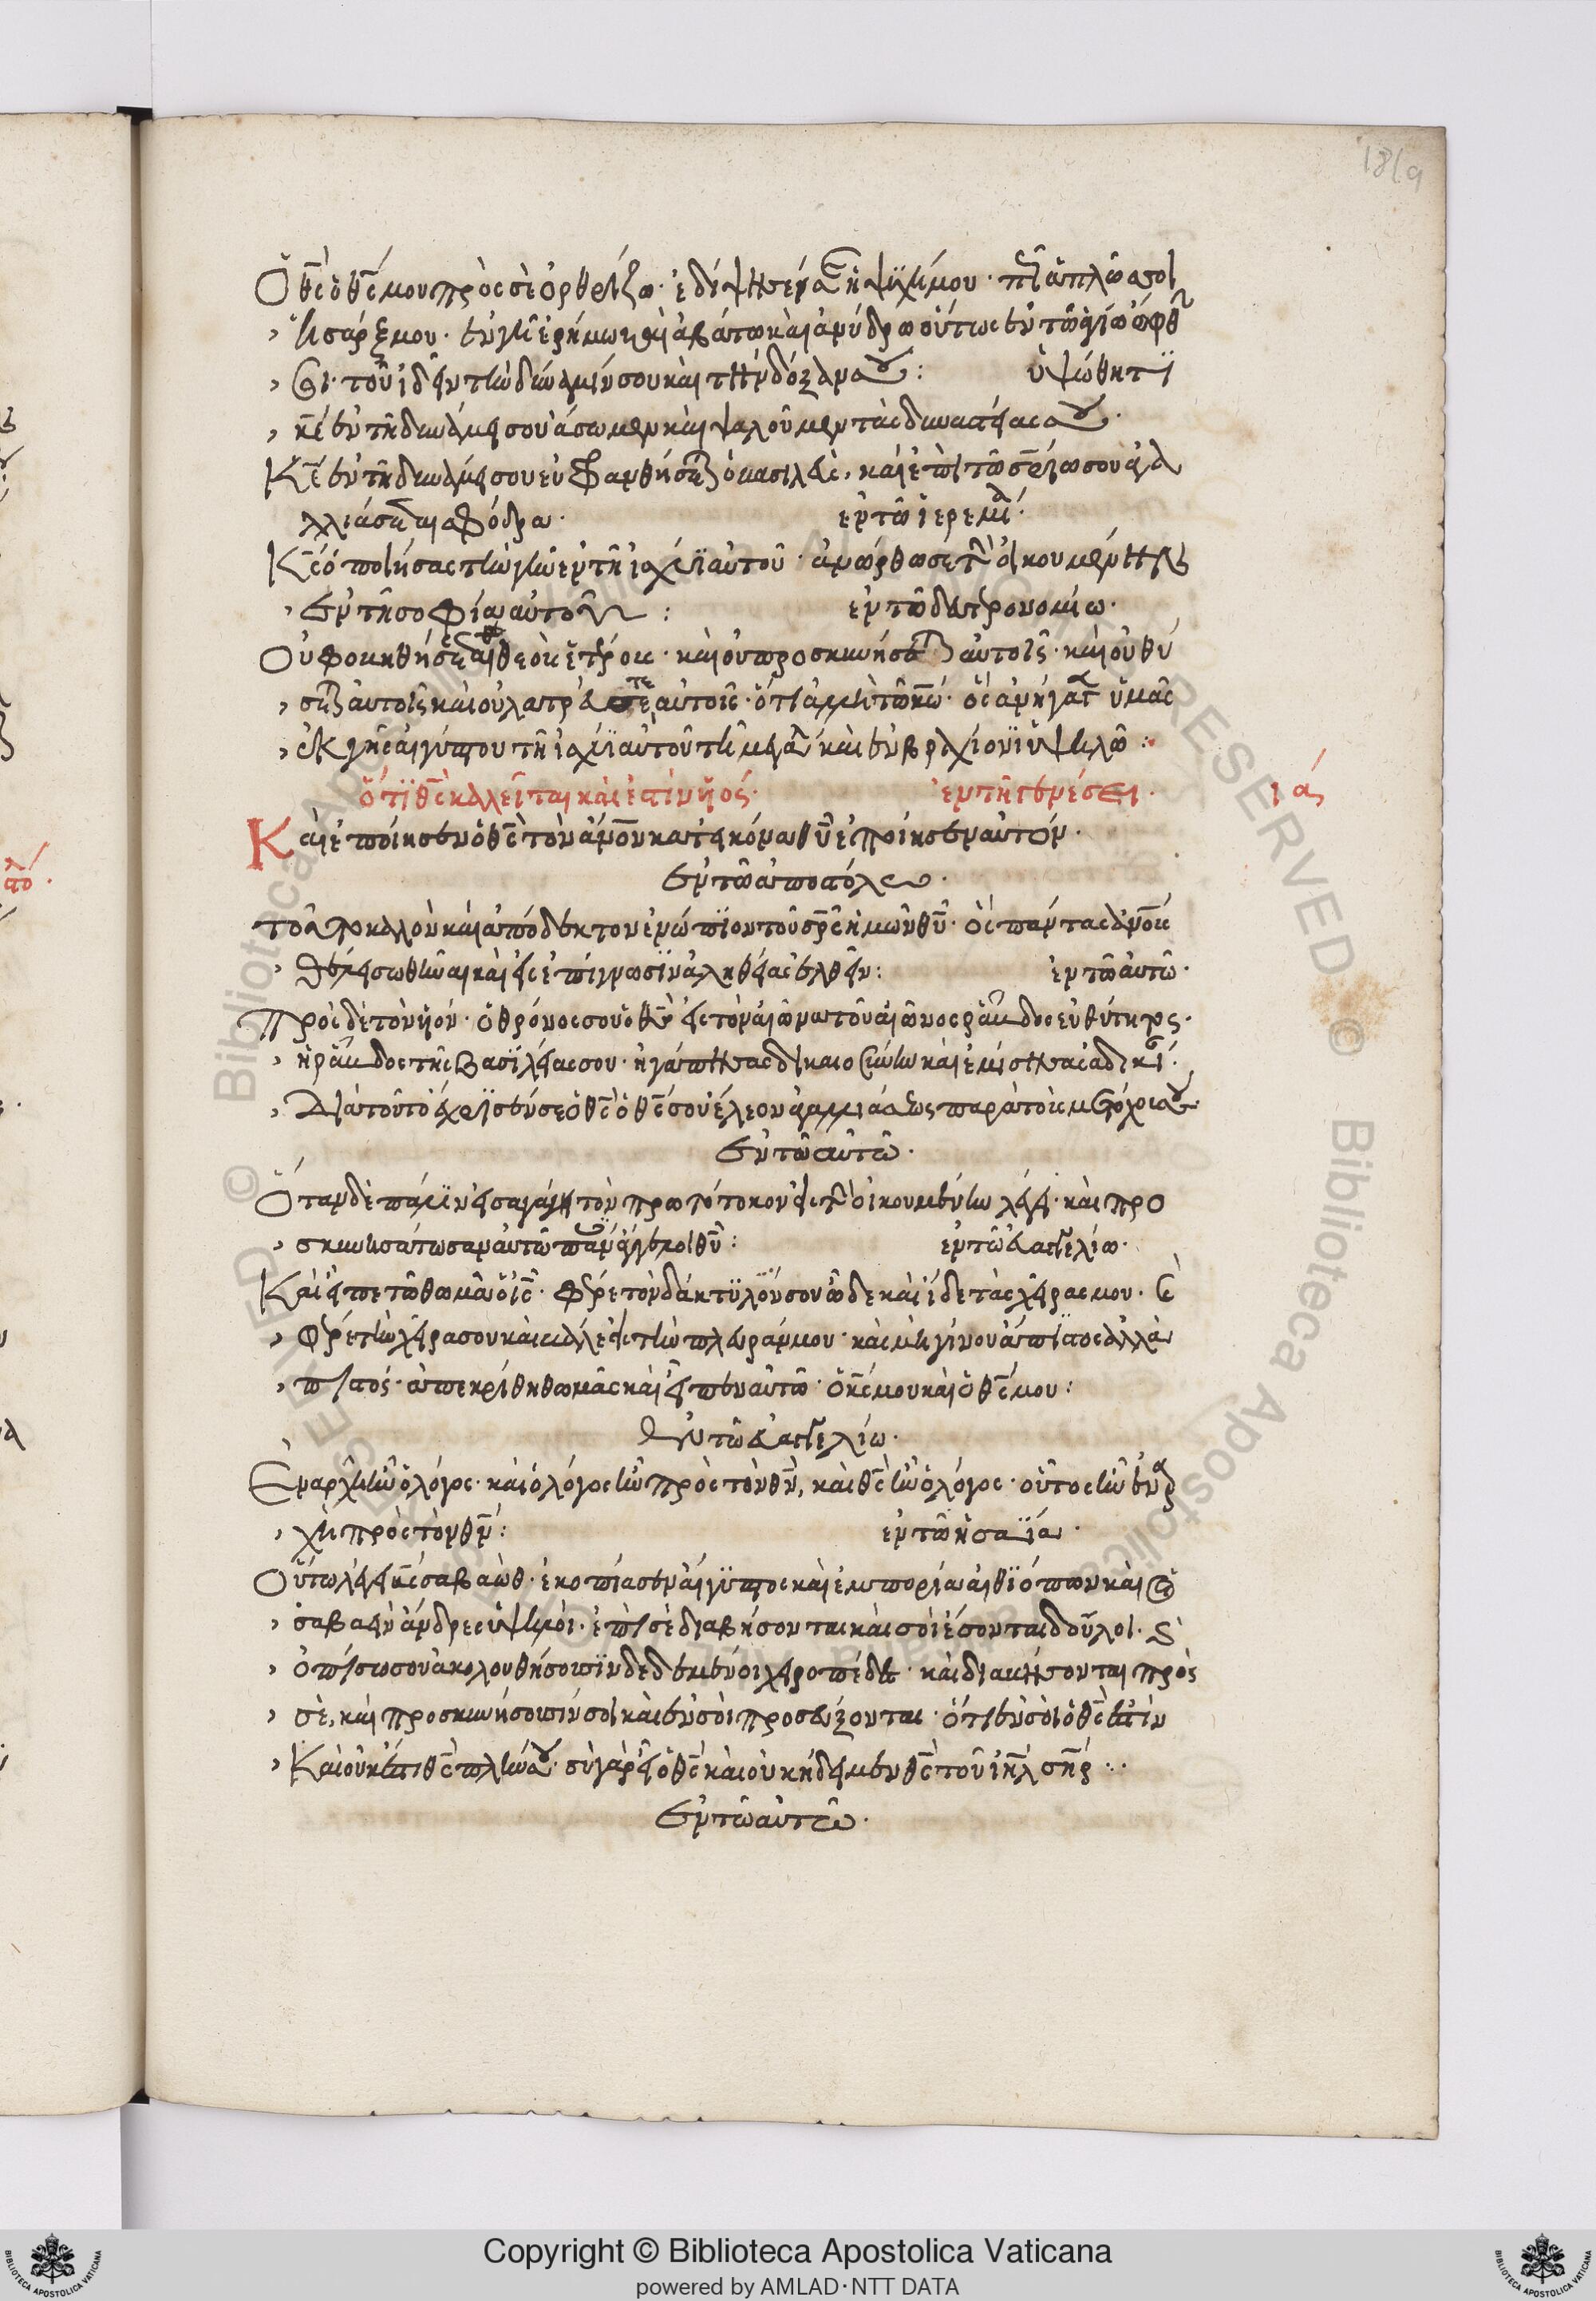 Ὁ θς ὁ θς μου πρὸς σὲ ὀρθρίζω· ἐδίψησέν σε ἡ ψυχή μου· ποσαπλῶς σοι
ἡ σάρξ μου· ἐν γῆ ἐρήμω καὶ ἀβάτω καὶ ἀνύδρω οὕτως ἐν τῶ ἁγίω ὤφθην
σοι· τοῦ ἰδεῖν τὴν δύναμίν σου καὶ τὴν δόξαν σου: ὑψώθητι
κε ἐν τῆ δυνάμει σου ἄσωμεν καὶ ψαλοῦμεν τὰς δυναστείας σου·
Κε ἐν τῆ δυνάμει σου εὐφρανθήσεται ὁ βασιλεὺς, καὶ ἐπὶ τῶ σωτηρίω σου ἀγα
λλιάσεται σφόδρα· ἐν τῶ ἱερεμία·
Κς ὁ ποιήσας τὴν γῆν ἐν τῆ ἰσχύϊ αὐτοῦ· ἀνώρθωσε τὴν οἰκουμένην
ἐν τῆ σοφία αὐτοῦ: ἐν τῶ δευτερονομίω·
Οὐ φοβηθήσεσθε θεοὺς ἑτέρους· καὶ οὐ προσκυνήσετε αὐτοῖς· καὶ οὐ θύ
σετε αὐτοῖς καὶ οὐ λατρεύσετε αὐτοῖς· ὅτι ἀλλ' ἢ τῶ κω· ὃς ἀνήγαγεν ὑμᾶς
ἐκ γῆς αἰγύπτου τῆ ἰσχύϊ αὐτοῦ τῆ μεγάλη καὶ ἐν βραχίονϊ ὑψηλῶ:
ὅτϊ θς καλεῖται καὶ ἐστὶν ἡ υἱός· ἐν τῆ γενέσει· ια
Καὶ ἐποίησεν ὁ θς τὸν ἀνον κατ' εἰκόνα θυ ἐποίησεν αὐτόν·
ἐν τῶ ἀποστόλω·
τοῦτο καλὸν καὶ ἀπόδεκτον ἐνώπϊον τοῦ σρς ἡμῶν θυ· ὃς πάντας ἀνους
θέλει σωθῆναι καὶ εἰς ἐπίγνωσϊν ἀληθείας ἐλθεῖν: ἐν τῶ αὐτῶ·
Πρὸς δὲ τὸν υἱόν· ὁ θρόνος σου ὁ θς εἰς τὸν αἰῶνα τοῦ αἰῶνος ῥάβδος εὐθύτητος·
ἡ ῥάβδος τῆς βασϊλείας σου· ἠγάπησας δικαιοσύνην καὶ ἐμίσησας ἀδικίαν·
Διὰ τοῦτο ἔχρϊσέν σε ὁ θς ὁ θς σου ἔλεον ἀγαλλιάσεως παρὰ τοὺς μετόχους σου·
ἐν τῶ αὐτῶ·
Ὅταν δὲ πάλϊν εἰσαγάγη τὸν πρωτότοκον εἰς τὴν οἰκουμένην λέγει· καὶ προ
σκυνησάτωσαν αὐτῶ πάντες ἄγγελοι θυ: ἐν τῶ εὐαγγελίω·
Καὶ εἶπε τῶ θωμᾶ ὁ ις· φέρε τὸν δάκτϋλόν σου ὧδε καὶ ἴδε τὰς χεῖρας μου· καὶ
φέρε τὴν χεῖρα σου καὶ βάλε εἰς τὴν πλευράν μου· καὶ μὴ γίνου ἄπϊστος ἀλλὰ
πιστός· ἀπεκρίθη θωμᾶς καὶ εἶπεν αὐτῶ· ὁ κς μου καὶ ὁ θς μου:
ἐν τῶ εὐαγγελίω·
Ἐν ἀρχῆ ἦν ὁ λόγος· καὶ ὁ λόγος ἦν πρὸς τὸν θν, καὶ θς ἦν ὁ λόγος· οὗτος ἦν ἐν ἀρ
χῆ πρὸς τὸν θν: ἐν τῶ ἠσαΐα·
Οὕτω λέγει κς σαβαώθ· ἐκοπίασεν αἴγϋπτος καὶ ἐμπορία αἰθϊόπων καὶ οἱ
σαβαεὶν ἄνδρες ὑψηλοὶ· ἐπὶ σὲ διαβήσονται καὶ σοὶ ἔσονται δοῦλοι· καὶ
ὀπίσω σου ἀκολουθήσουσϊν δεδεμένοι χειροπέδαις· καὶ διαβήσονται πρὸς
σὲ, καὶ προσκυνήσουσίν σοι καὶ ἐν σοὶ προσεύξονται· ὅτι ἐν σοὶ ὁ θς ἐστὶν
Καὶ οὐκ ἔστι θς πλὴν σου· σὺ γὰρ εἶ ὁ θς καὶ οὐκ ᾔδειμεν θς τοῦ ιηλ σηρ·
ἐν τῶ αὐτῶ·
Copyright © Biblioteca Apostolica Vaticana
powered by AMLAD·NTT DATA